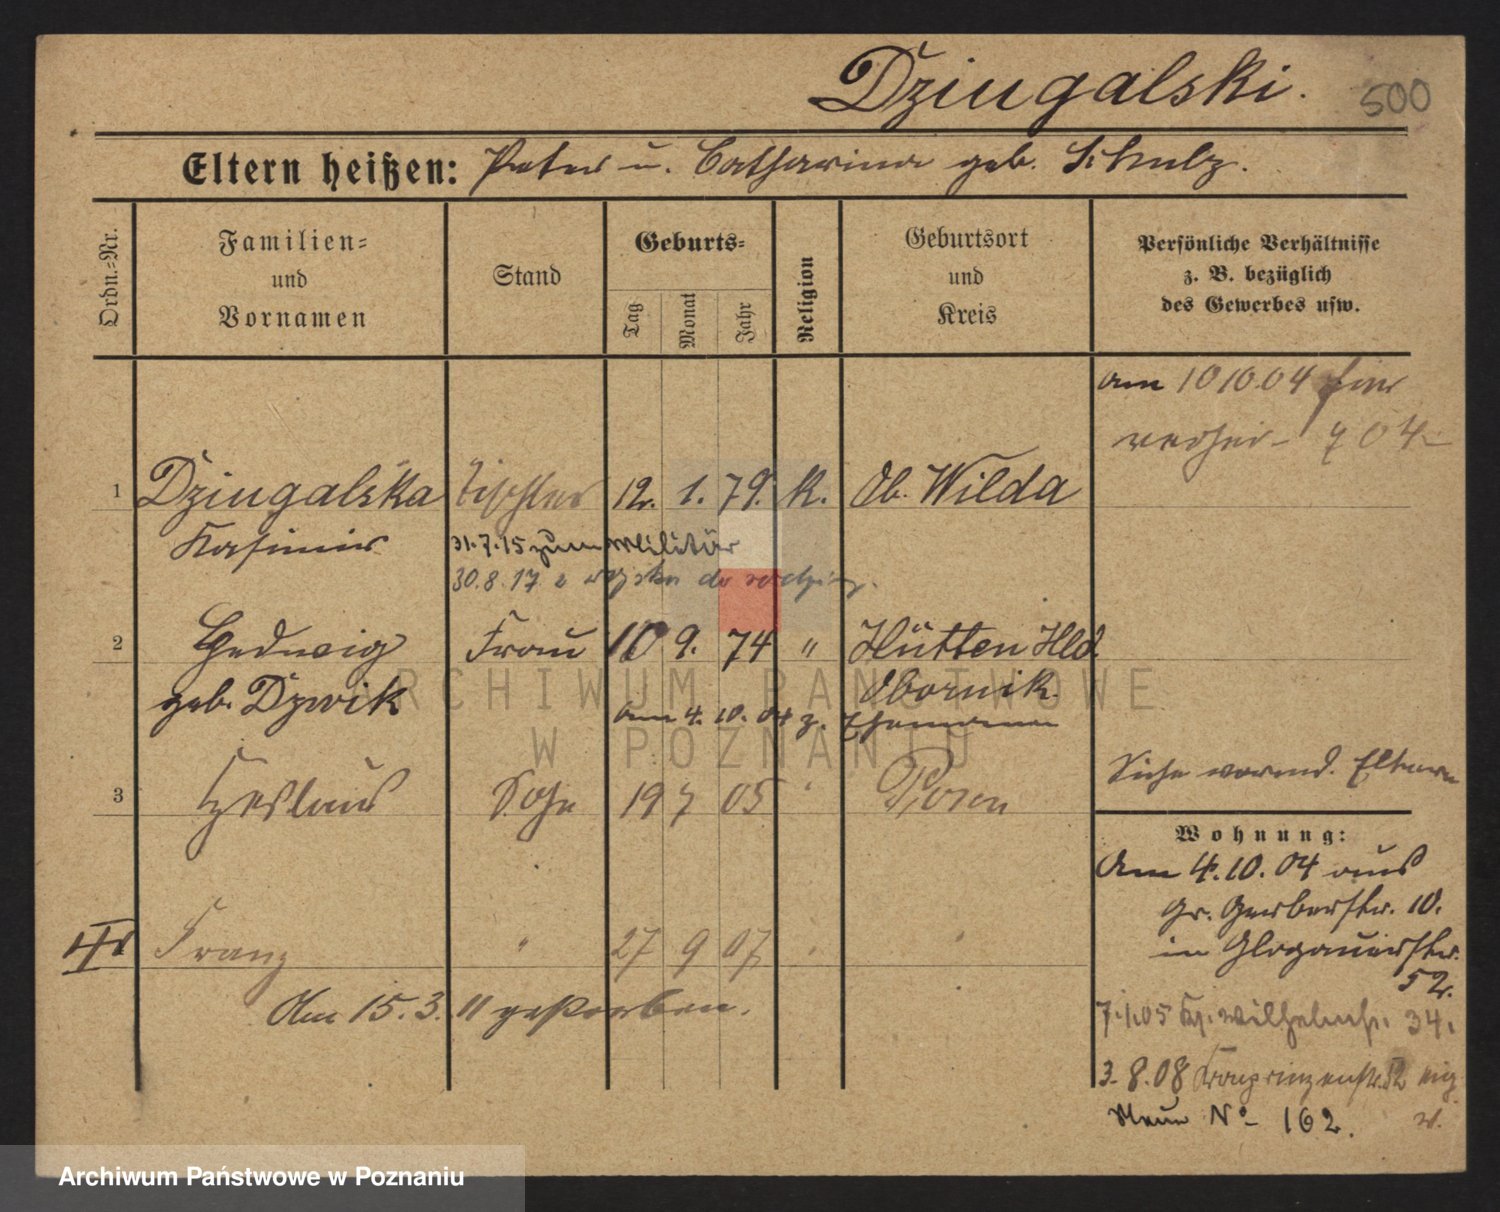 Dziugalski. 500
Eltern heißen: Peter u. Catharina geb. Schulz.
Ordn.-Nr.
Familien-
und
Vornamen
Stand
Geburts-
Tag
Monat
Jahr
Religion
Geburtsort
und
Kreis
Persönliche Verhältnisse
z. B. bezüglich
des Gewerbes usw.
am 10 10.04 hier
verhei- 704
1 Dziugalska Tischler 12. 1. 79. k. Ob. Wilda
Kasimir
31.7.15 zum Militär
30.8.17 z wojska do
2 Hedwig Frau 10 9. 74 " Hütten Hld
geb. Dzwik Obornik
am 4. 10. 04 z. Ehemann
Siehe vormd. Eltern
3 Czeslaus Sohn 19 7 05 " Posen
Franz " 27 9 07
Am 15.3.11 gestorben.
Wohnung:
Am 4.10.04 aus
Gr. Gerberstr. 10.
in Glogauerstr.
52.
7.1.05 Kp. Wilhelmstr. 34.
3.8.08 Kronprinzenstr. 52
Neue No 162.
ARCHIWUM PAŃSTWOWE
W POZNANIU
Archiwum Państwowe w Poznaniu